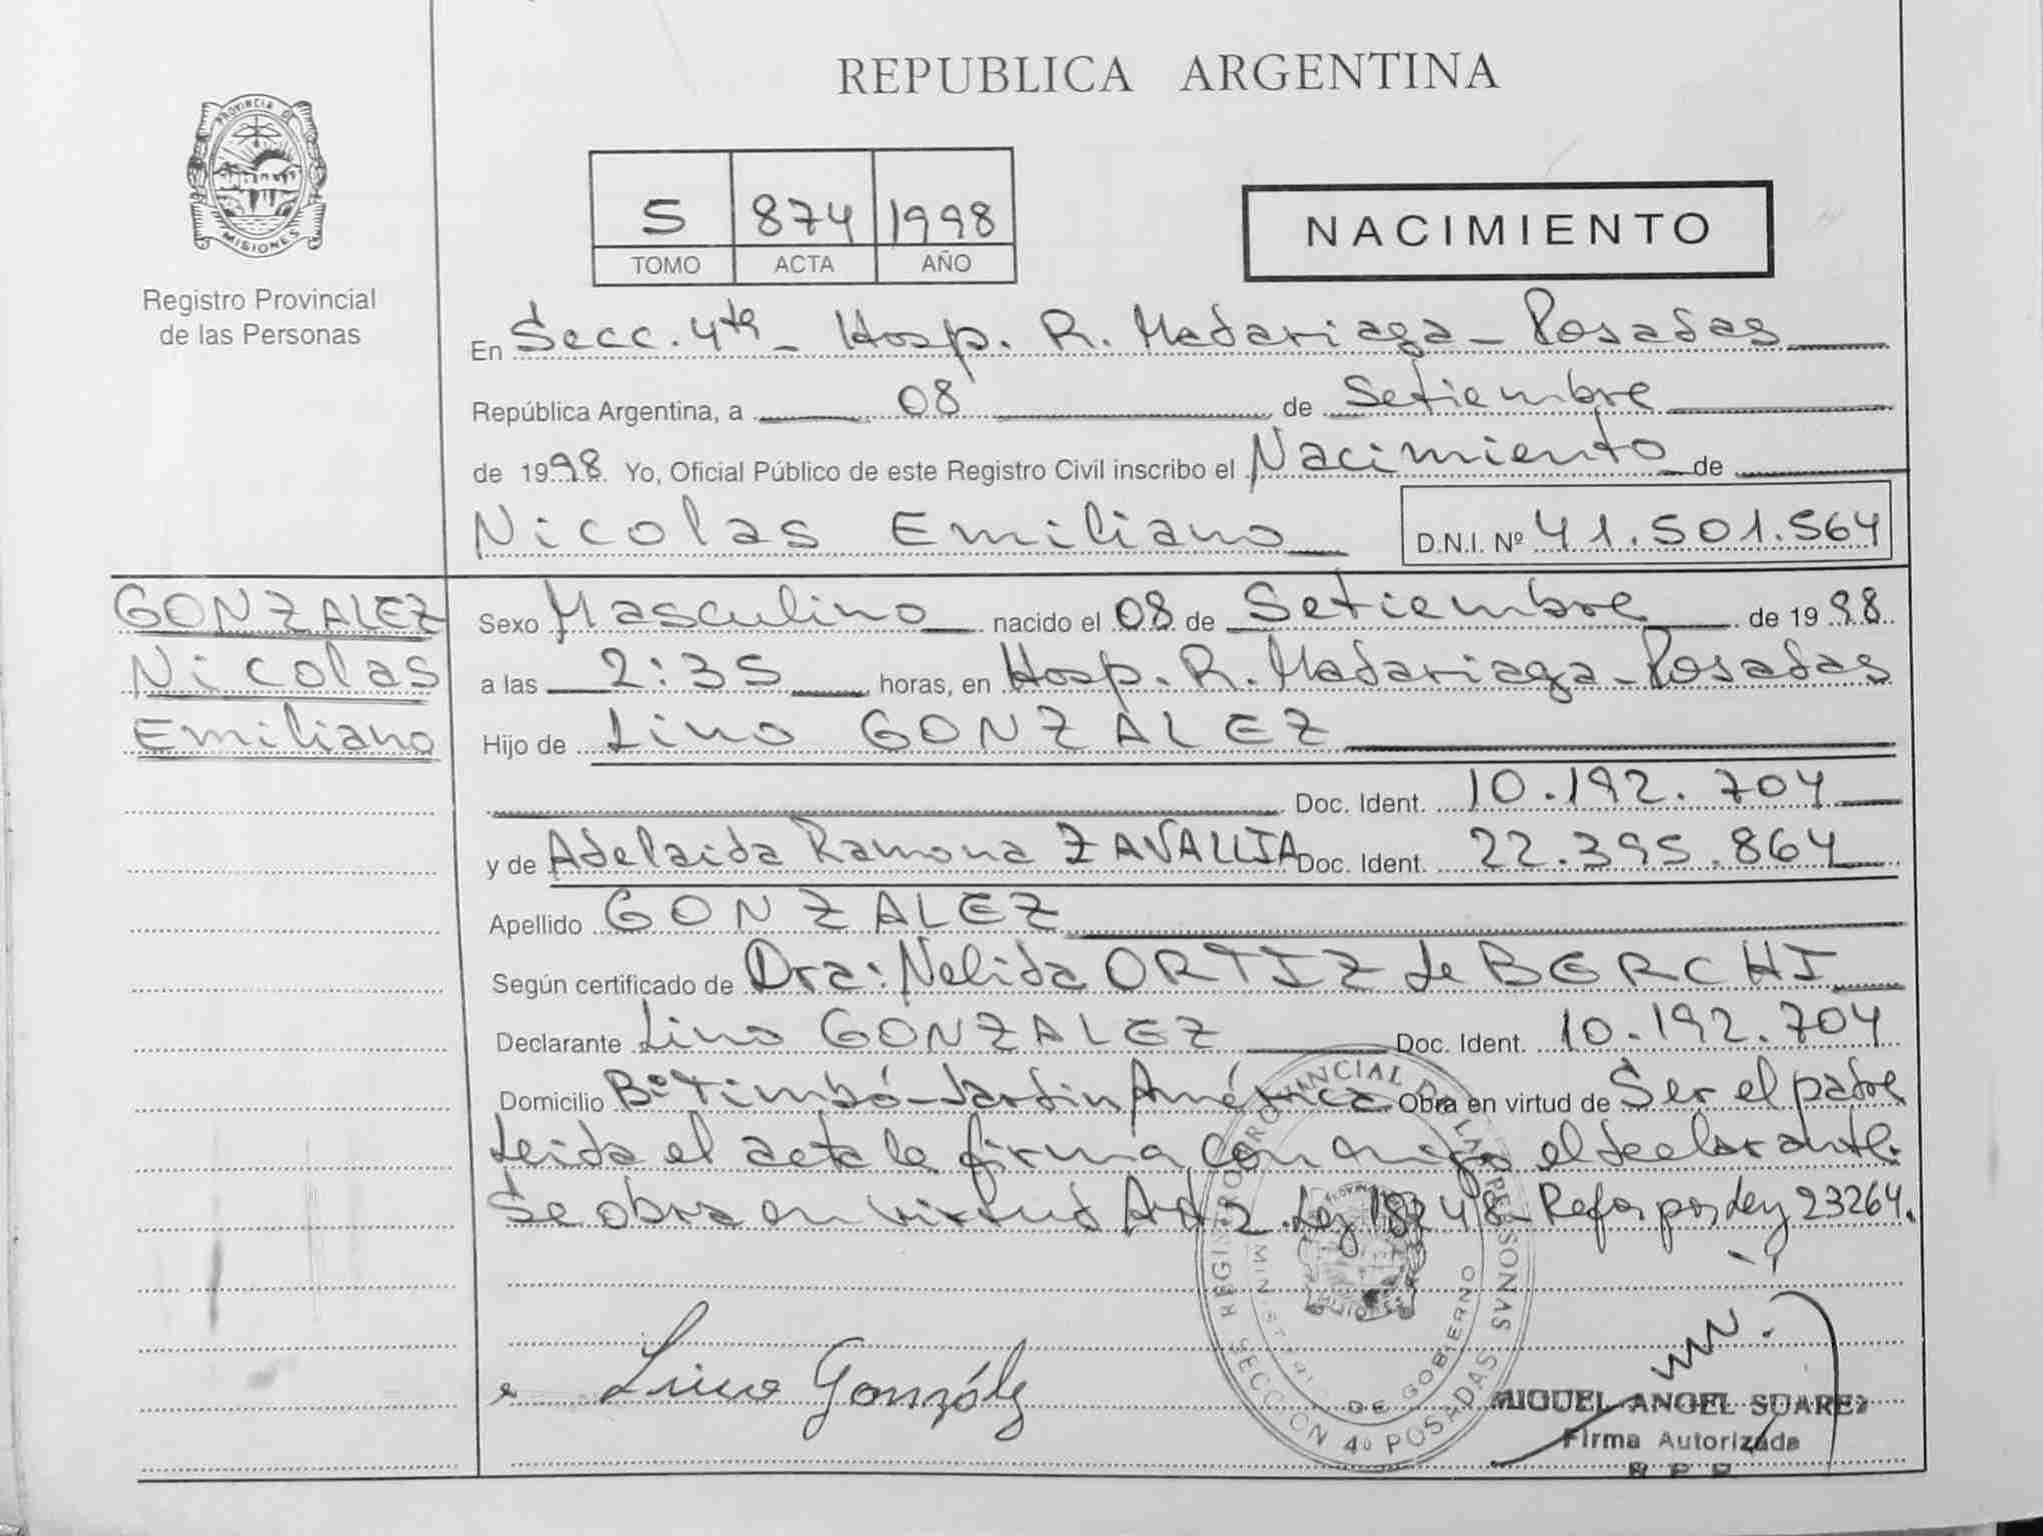 REPUBLICA ARGENTINA
PROVINCIA DE
MISIONES
Registro Provincial
de las Personas
5 874 1998
TOMO ACTA AÑO
NACIMIENTO
En Secc. 4ta - Hosp. R. Madariaga - Posadas
República Argentina, a 08 de Setiembre
de 1998. Yo, Oficial Público de este Registro Civil inscribo el Nacimiento de
Nicolas Emiliano D.N.I. Nº 41.501.564
GONZALEZ
Nicolas
Emiliano
Sexo Masculino nacido el 08 de Setiembre de 1998.
a las 2:35 horas, en Hosp. R. Madariaga - Posadas
Hijo de Lino GONZALEZ
Doc. Ident. 10.192.704
y de Adelaida Ramona ZAVALLIA Doc. Ident. 22.395.864
Apellido GONZALEZ
Según certificado de Dra: Nelida ORTIZ de BERCHI
Declarante Lino GONZALEZ Doc. Ident. 10.192.704
Domicilio Bº Timbó - Jardin América Obra en virtud de Ser el padre
Leida el acta la firma conmigo el declarante.
Se obra en virtud Art 2 Ley 18248 - Refor por Ley 23264.
REGISTRO PROVINCIAL DE LAS PERSONAS
MINISTERIO DE GOBIERNO
SECCION 4º POSADAS
Lino González
MIGUEL ANGEL SUAREZ
Firma Autorizada
R P P